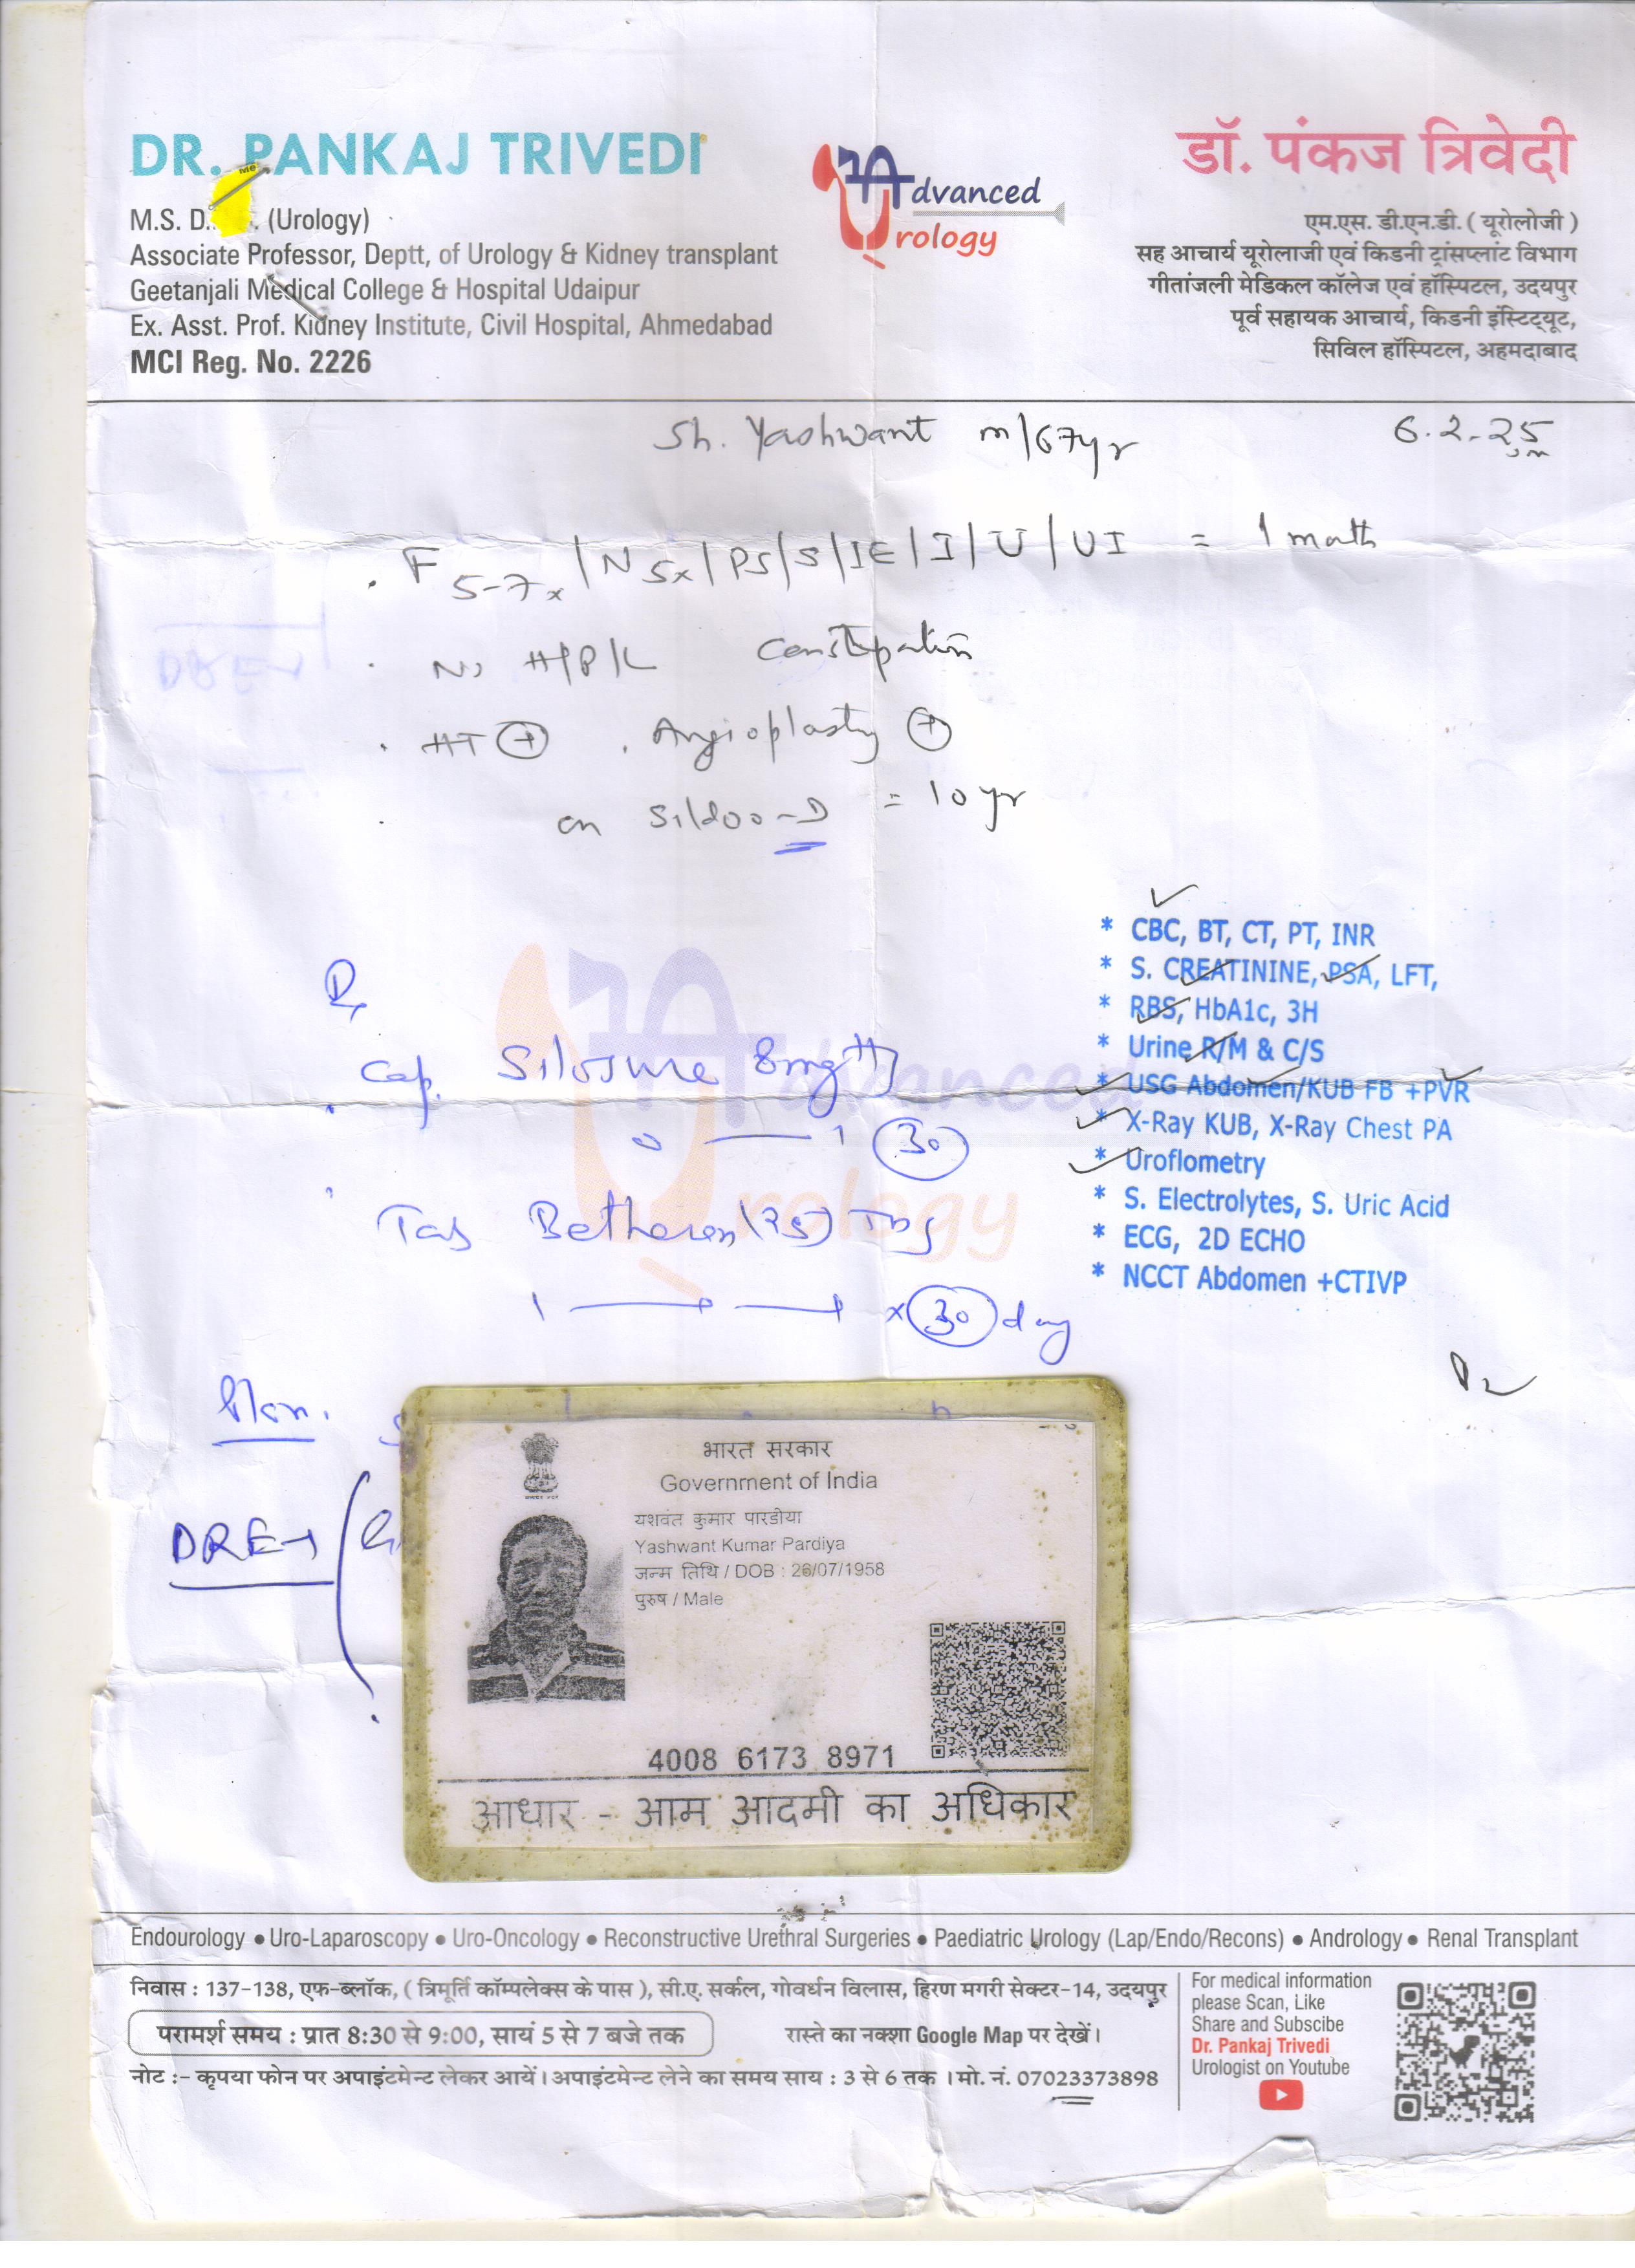 DR. PANKAJ TRIVEDI
M.S. D. (Urology)
Associate Professor, Deptt, of Urology & Kidney transplant
Geetanjali Medical College & Hospital Udaipur
Ex. Asst. Prof. Kidney Institute, Civil Hospital, Ahmedabad
MCI Reg. No. 2226
Advanced
Urology
डॉ. पंकज त्रिवेदी
एम.एस. डी.एन.डी. ( यूरोलोजी )
सह आचार्य यूरोलाजी एवं किडनी ट्रांसप्लांट विभाग
गीतांजली मेडिकल कॉलेज एवं हॉस्पिटल, उदयपुर
पूर्व सहायक आचार्य, किडनी इंस्टिट्यूट,
सिविल हॉस्पिटल, अहमदाबाद
Sh. Yashwant m/67yr
6.2.25
F 5-7x /N 5x/PS/S/IE/I/U/UI = 1 month
No H/P/L Constipation
HT + . Angioplasty +
on Sildoo-D = 10 yr
* CBC, BT, CT, PT, INR
* S. CREATININE, PSA, LFT,
* RBS, HbA1c, 3H
* Urine R/M & C/S
* USG Abdomen/KUB FB +PVR
* X-Ray KUB, X-Ray Chest PA
* Uroflometry
* S. Electrolytes, S. Uric Acid
* ECG, 2D ECHO
* NCCT Abdomen +CTIVP
Rx
Cap. Silosure 8mg
0 — 1 (30)
Tab (25)
1 — — x (30) day
Plan.
DRE→
भारत सरकार
Government of India
यशवंत कुमार पारडीया
Yashwant Kumar Pardiya
जन्म तिथि / DOB : 26/07/1958
पुरुष / Male
4008 6173 8971
आधार - आम आदमी का अधिकार
Endourology • Uro-Laparoscopy • Uro-Oncology • Reconstructive Urethral Surgeries • Paediatric Urology (Lap/Endo/Recons) • Andrology • Renal Transplant
निवास : 137-138, एफ-ब्लॉक, ( त्रिमूर्ति कॉम्पलेक्स के पास ), सी.ए. सर्कल, गोवर्धन विलास, हिरण मगरी सेक्टर-14, उदयपुर
परामर्श समय : प्रात 8:30 से 9:00, सायं 5 से 7 बजे तक
रास्ते का नक्शा Google Map पर देखें।
नोट :- कृपया फोन पर अपाइंटमेन्ट लेकर आयें। अपाइंटमेन्ट लेने का समय साय : 3 से 6 तक । मो. नं. 07023373898
For medical information
please Scan, Like
Share and Subscibe
Dr. Pankaj Trivedi
Urologist on Youtube